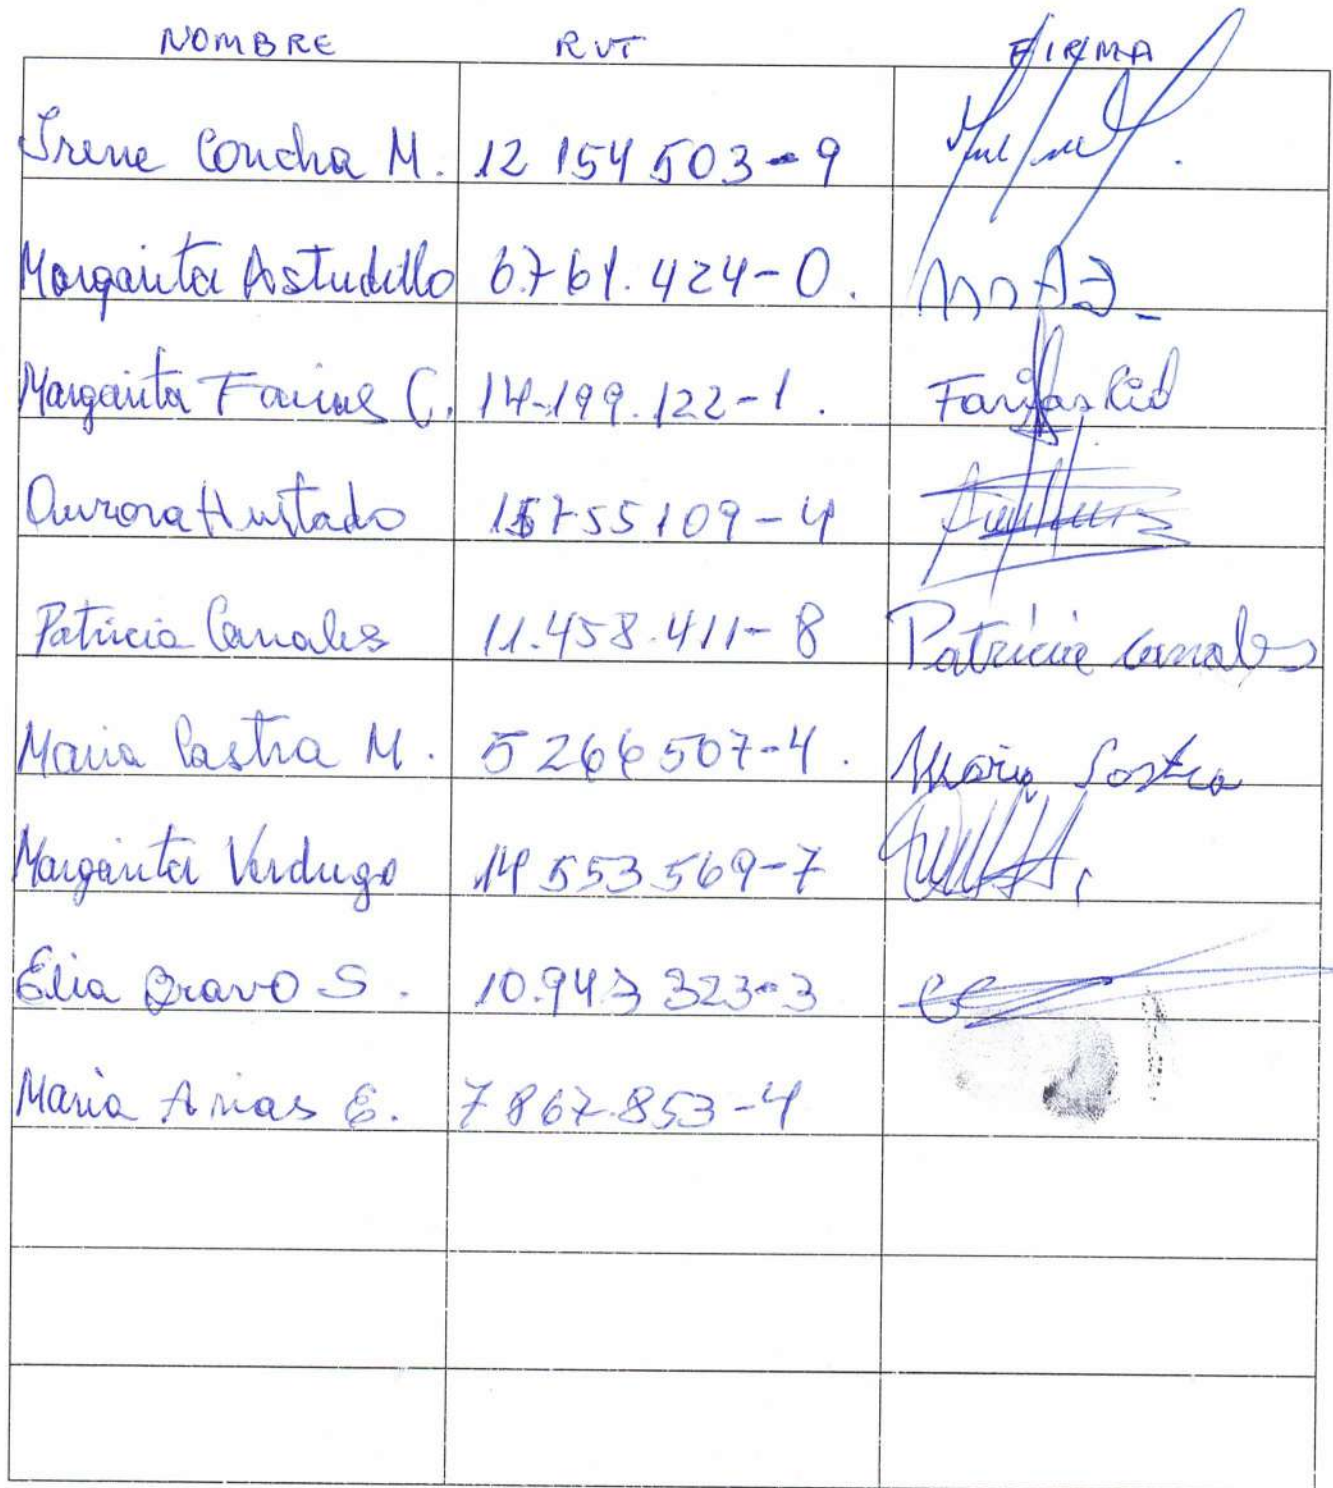 NOMBRE RUT FIRMA
Irene Concha M. 12 154 503-9
Margarita Astudillo 6.761.424-0.
Margarita Farias C. 14.199.122-1. Farias Cid
Aurora Hurtado 15755109-4
Patricia Canales 11.458.411-8 Patricia Canales
Maria Castra M. 5266507-4. Maria Castra
Margarita Verdugo 14 553 569-7
Elia Bravo S. 10.943 323-3
Maria Arias E. 7867.853-4